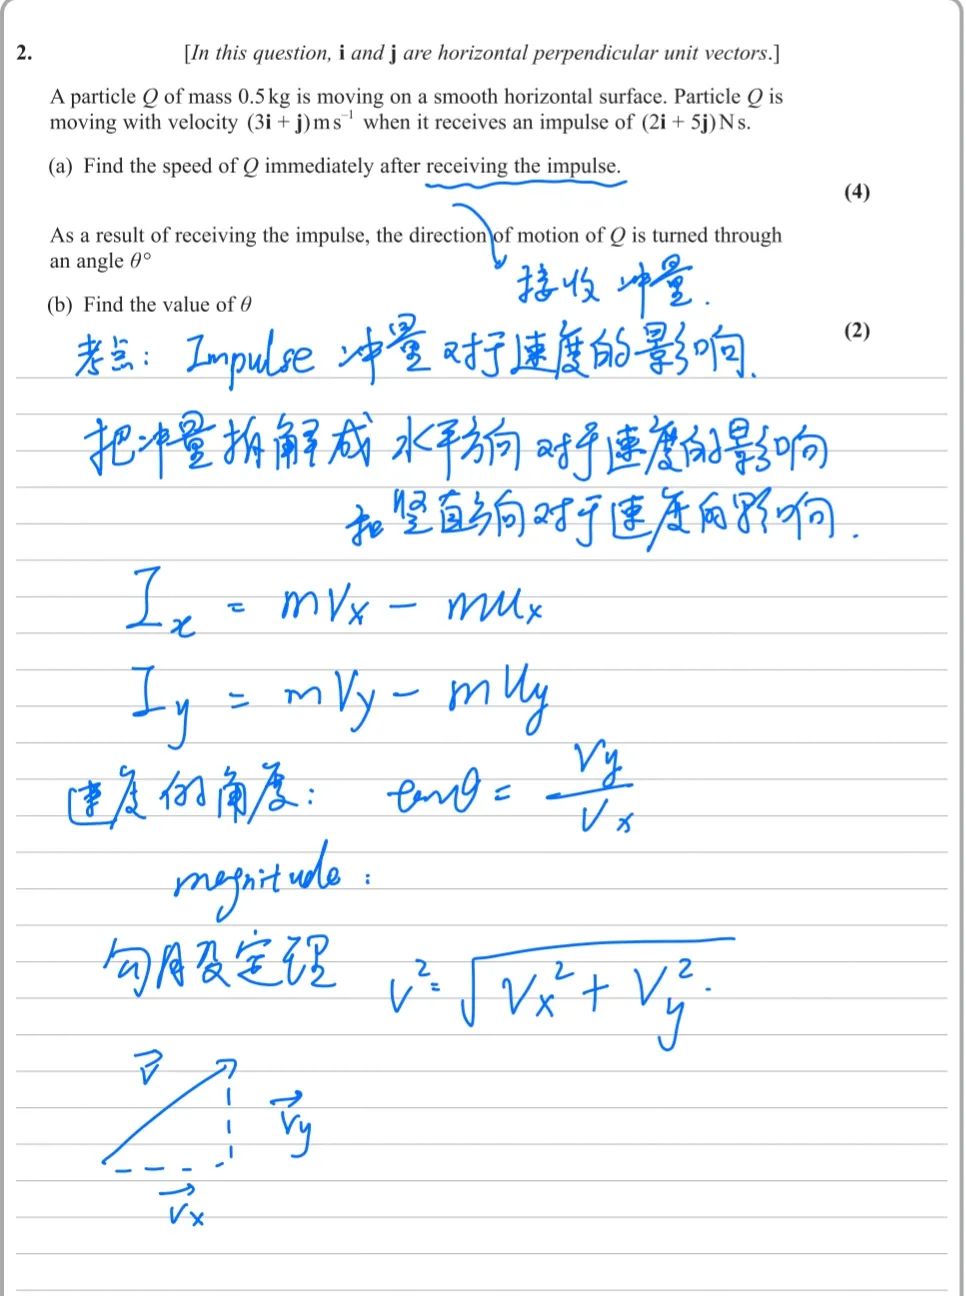 2. [In this question, i and j are horizontal perpendicular unit vectors.]
A particle Q of mass 0.5 kg is moving on a smooth horizontal surface. Particle Q is
moving with velocity (3i + j) m s⁻¹ when it receives an impulse of (2i + 5j) N s.
(a) Find the speed of Q immediately after receiving the impulse.
(4)
As a result of receiving the impulse, the direction of motion of Q is turned through
an angle θ°
接收 冲量.
(b) Find the value of θ
(2)
考点: Impulse 冲量对于速度的影响.
把冲量拆解成 水平方向对于速度的影响
和竖直方向对于速度的影响.
Iₓ = mVₓ − muₓ
I_y = mV_y − mu_y
速度的角度: tanθ = V_y / Vₓ
magnitude:
勾股定理 V² = √(Vₓ² + V_y²).
V⃗
V⃗_y
V⃗ₓ